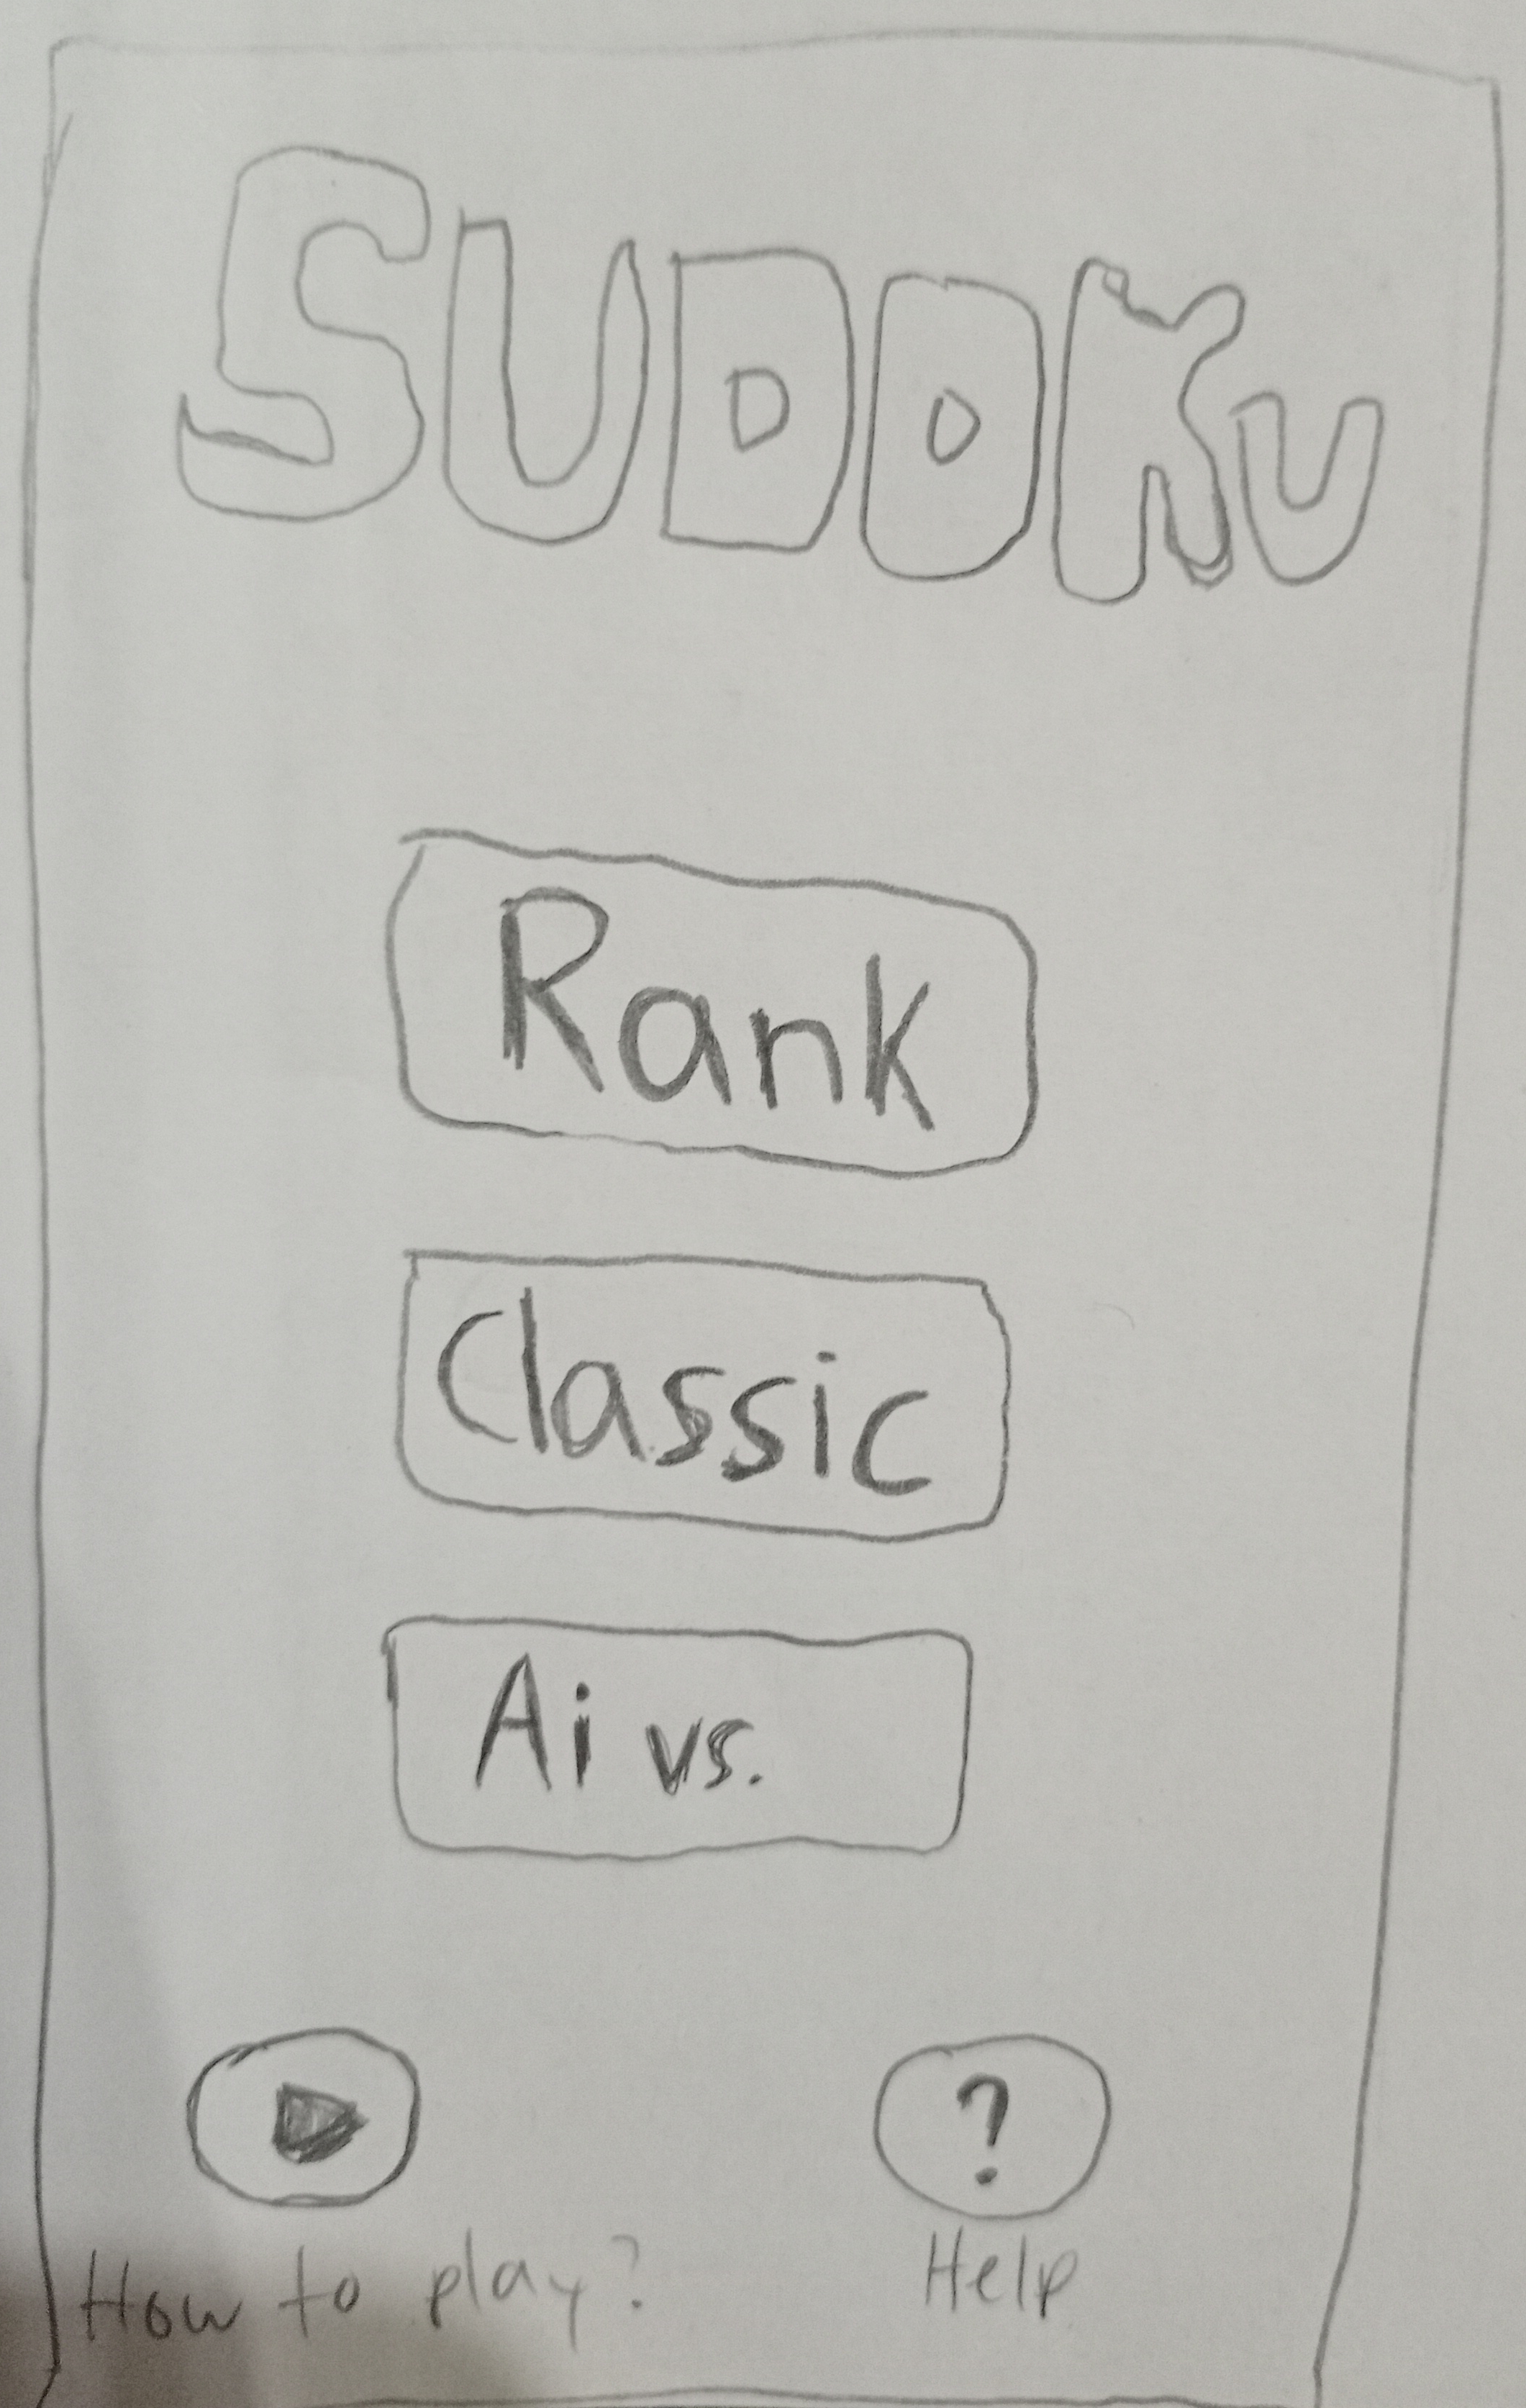 SUDOKU
Rank
Classic
Ai vs.
?
How to play?
Help